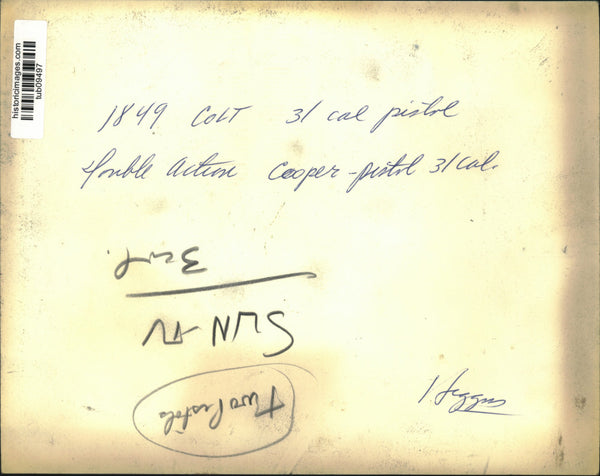 historicimages.com
tub09497
1849 Colt 31 cal pistol
Double Action Cooper-pistol 31 cal.
3 col.
SUN TV
Two Pistols
Higgins